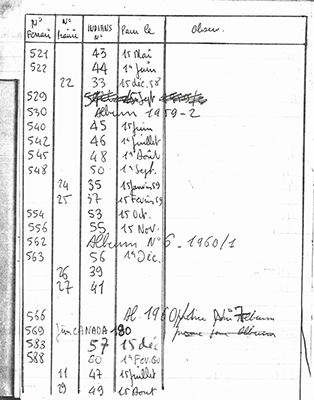 N° Ferrari N° Prairie INDIANS N° Pour le Obser.
521 43 15 Mai
522 44 1er Juin
22 33 15 déc. 58
529 Sept.
530 Album 1959-2
540 45 15 Juin
542 46 1er Juillet
545 48 1er Août
548 50 1er Sept.
24 35 15 Janvier 59
25 37 15 Fevrier 59
554 53 15 Oct.
556 55 15 Nov.
562 Album N° 6 - 1960/1
563 56 1er Déc.
26 39
27 41
566 Al. 1960 7 Album
569 CANADA 180 pour son album
583 57 15 déc
588 60 1er Fev. 60
11 47 15 Juillet
29 49 15 Aout